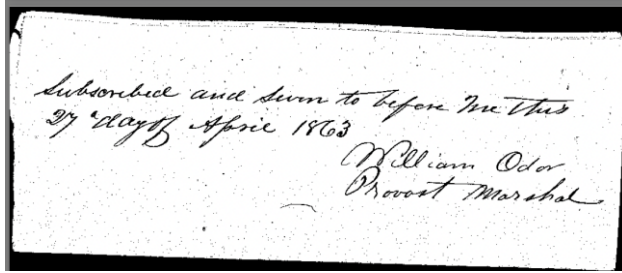 Subscribed and sworn to before me this
27 day of April 1863
William Odor
Provost Marshal